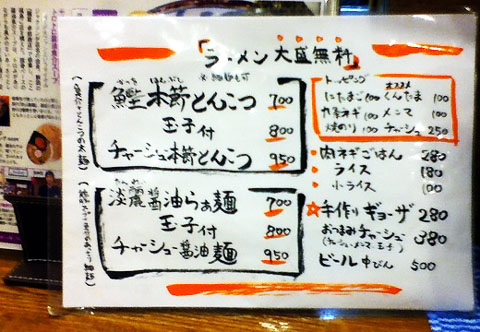 「ラーメン大盛無料」
鰹本節とんこつ 700
玉子付 800
チャーシュー本節とんこつ 950
淡麗醤油らぁ麺 700
玉子付 800
チャーシュー醤油麺 950
トッピング
オススメ
にたまご 100 くんたま 100
100 メンマ 100
焼のり 100 チャーシュー 250
肉ネギごはん 280
ライス 180
小ライス 100
☆手作りギョーザ 280
おつまみチャーシュー 380
(チャーシュー・メンマ・玉子)
ビール 中びん 500